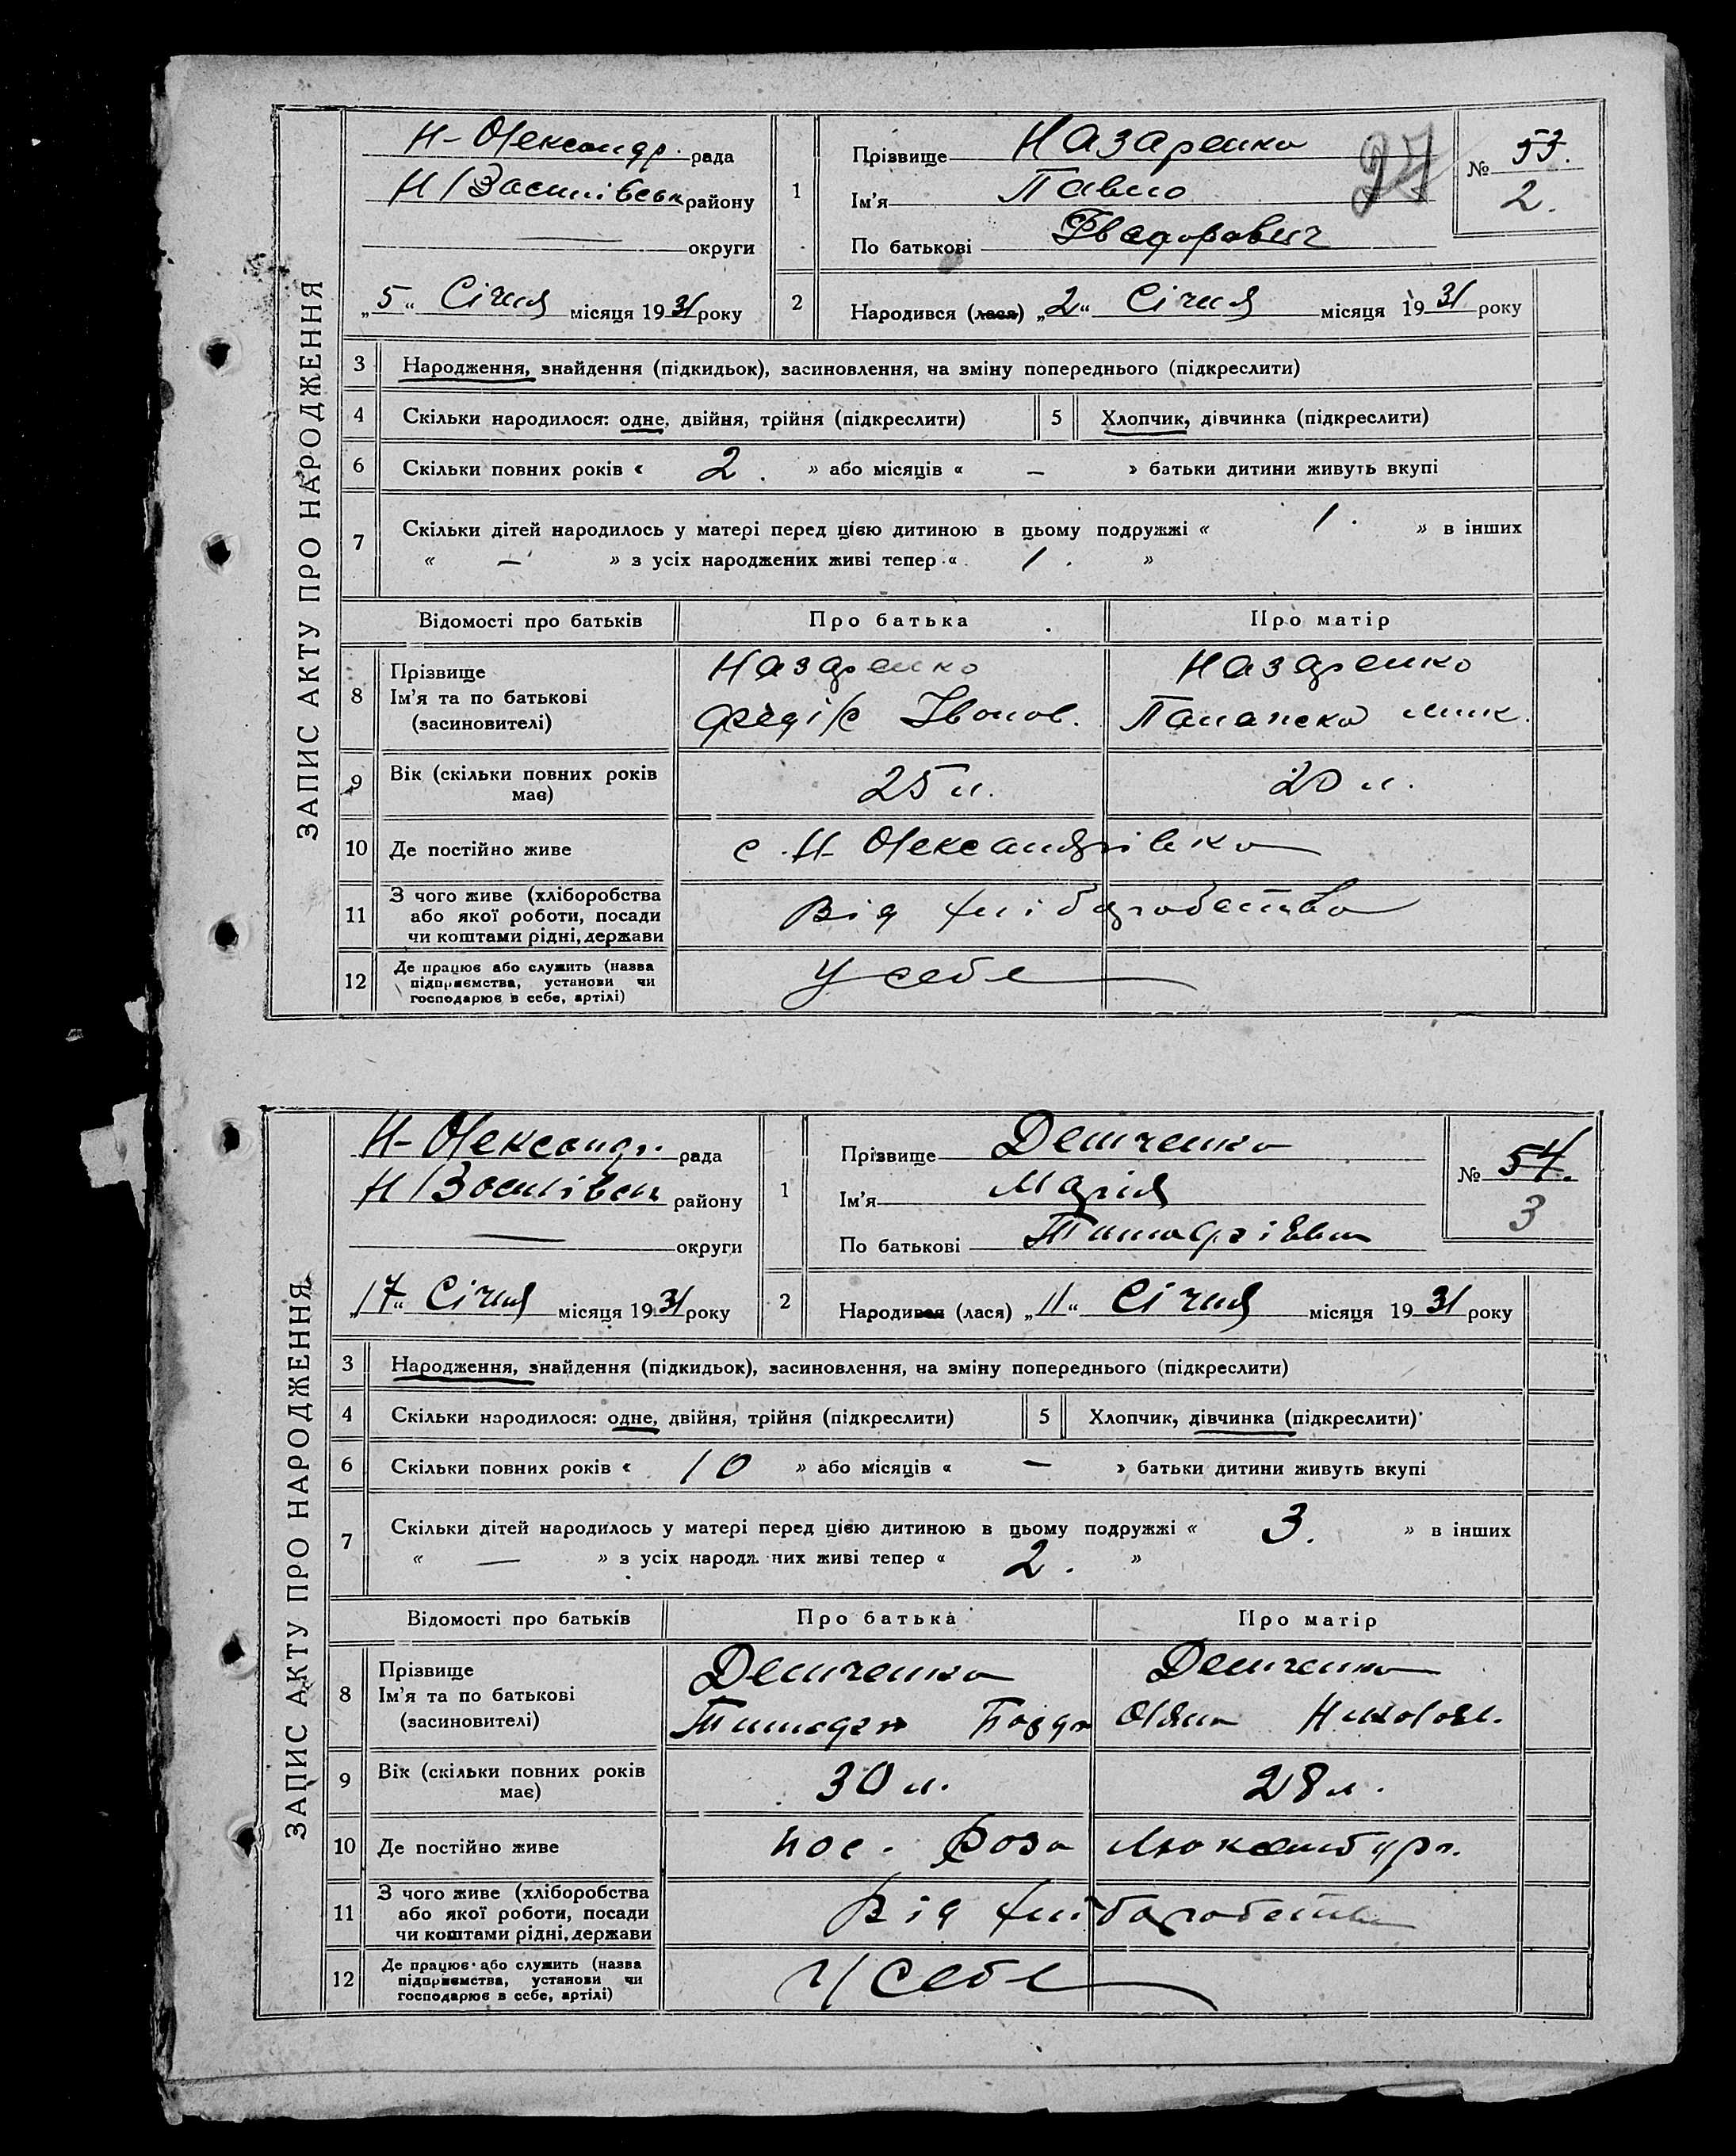 ЗАПИС АКТУ ПРО НАРОДЖЕННЯ
Н-Олександр. рада
Н/Василівськ району
округи
„5“ Січня місяця 1931 року
1
Прізвище Назаренко
Ім'я Павло
По батькові Фведорович
27
№ 53.
2.
2
Народився (лася) „2“ Січня місяця 1931 року
3 Народження, знайдення (підкидьок), засиновлення, на зміну попереднього (підкреслити)
4 Скільки народилося: одне, двійня, трійня (підкреслити) 5 Хлопчик, дівчинка (підкреслити)
6 Скільки повних років « 2. » або місяців « – » батьки дитини живуть вкупі
7 Скільки дітей народилось у матері перед цією дитиною в цьому подружжі « 1. » в інших
« – » з усіх народжених живі тепер « 1. »
Відомості про батьків Про батька Про матір
8 Прізвище
Ім'я та по батькові
(засиновителі)
Назаренко
Федір Іванов.
Назаренко
Палажка мик.
9 Вік (скільки повних років має) 25 л. 20 л.
10 Де постійно живе с. Н-Олександрівка
11 З чого живе (хліборобства
або якої роботи, посади
чи коштами рідні, держави
Від хліборобства
12 Де працює або служить (назва
підприємства, установи чи
господарює в себе, артілі)
У себе
ЗАПИС АКТУ ПРО НАРОДЖЕННЯ
Н-Олександр. рада
Н/Василівськ району
округи
„17“ Січня місяця 1931 року
1
Прізвище Демченко
Ім'я Марія
По батькові
№ 54.
3
2
Народився (лася) „11“ Січня місяця 1931 року
3 Народження, знайдення (підкидьок), засиновлення, на зміну попереднього (підкреслити)
4 Скільки народилося: одне, двійня, трійня (підкреслити) 5 Хлопчик, дівчинка (підкреслити)
6 Скільки повних років « 10 » або місяців « – » батьки дитини живуть вкупі
7 Скільки дітей народилось у матері перед цією дитиною в цьому подружжі « 3. » в інших
« – » з усіх народж них живі тепер « 2. »
Відомості про батьків Про батька Про матір
8 Прізвище
Ім'я та по батькові
(засиновителі)
Демченко
Демченко
9 Вік (скільки повних років має) 30 л. 28 л.
10 Де постійно живе пос. Роза Люксембург.
11 З чого живе (хліборобства
або якої роботи, посади
чи коштами рідні, держави
Від хліборобства
12 Де працює або служить (назва
підприємства, установи чи
господарює в себе, артілі)
У себе